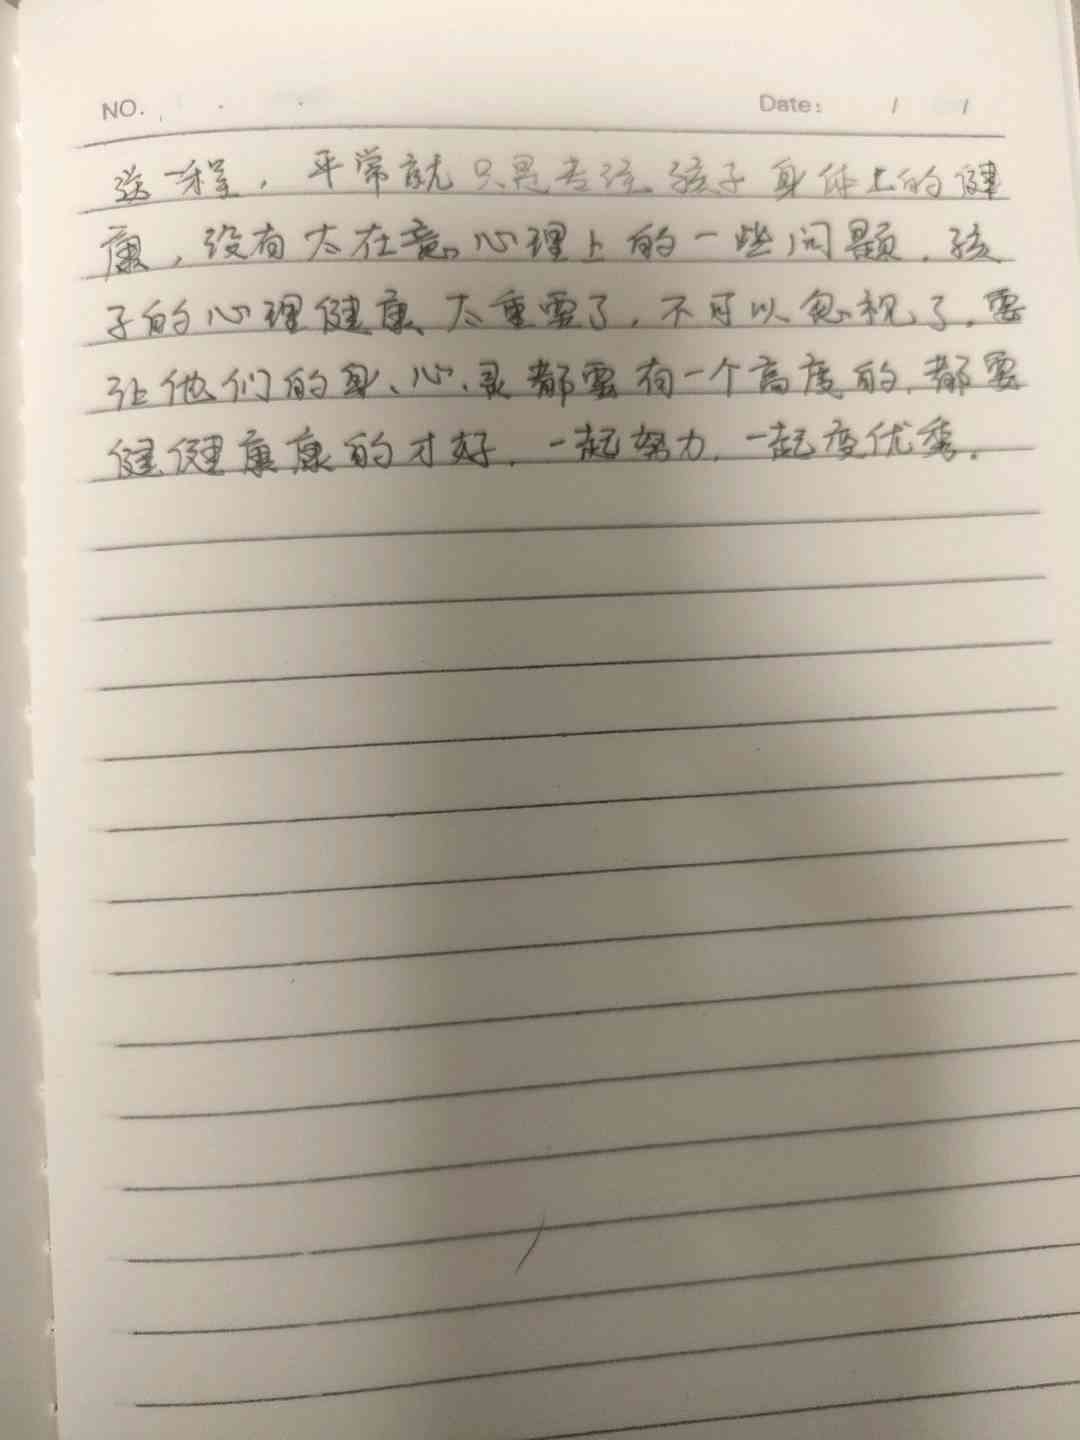 NO.
Date: / /
送一程，平常就只是专注孩子身体上的健
康，没有太在意心理上的一些问题．孩
子的心理健康太重要了，不可以忽视了．要
让他们的身、心、灵都要有一个高度的，都要
健健康康的才好．一起努力，一起变优秀．